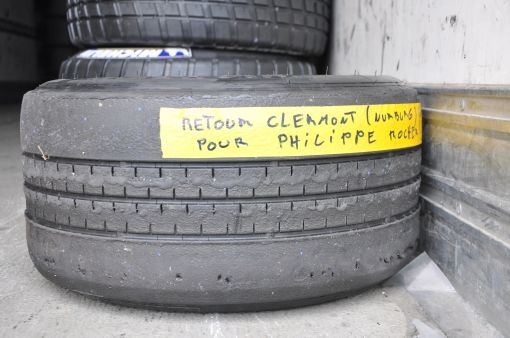 RETOUR CLERMONT (NURBURG)
POUR PHILIPPE